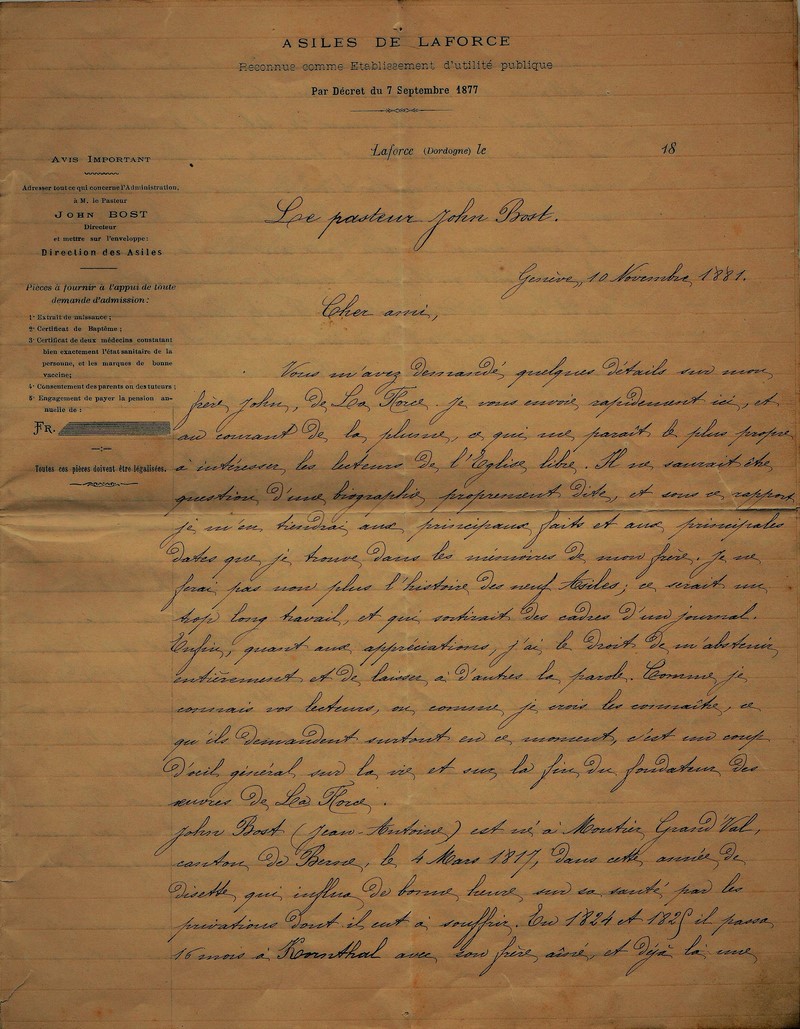 ASILES DE LAFORCE
Reconnus comme Etablissement d'utilité publique
Par Décret du 7 Septembre 1877
Laforce (Dordogne) le 18
AVIS IMPORTANT
Adresser tout ce qui concerne l'Administration,
à M. le Pasteur
JOHN BOST
Directeur
et mettre sur l'enveloppe:
Direction des Asiles
Pièces à fournir à l'appui de toute
demande d'admission:
1° Extrait de naissance;
2° Certificat de Baptême;
3° Certificat de deux médecins constatant
bien exactement l'état sanitaire de la
personne, et les marques de bonne
vaccine;
4° Consentement des parents ou des tuteurs;
5° Engagement de payer la pension an-
nuelle de:
FR.
Toutes ces pièces doivent être légalisées.
Le pasteur John Bost.
Genève, 10 Novembre 1881.
Cher ami,
Vous m'avez demandé quelques détails sur mon
frère John, de La Force. Je vous envoie rapidement ici, et
au courant de la plume, ce qui me paraît le plus propre
à intéresser les lecteurs de l'Eglise libre. Il ne saurait être
question d'une biographie proprement dite, et sous ce rapport
je m'en tiendrai aux principaux faits et aux principales
dates que je trouve dans les mémoires de mon frère. Je ne
ferai pas non plus l'histoire des neuf Asiles; ce serait un
trop long travail, et qui sortirait des cadres d'un journal.
Enfin, quant aux appréciations, j'ai le droit de m'abstenir
entièrement et de laisser à d'autres la parole. Comme je
connais vos lecteurs, ou comme je crois les connaître, ce
qu'ils demandent surtout en ce moment, c'est un coup
d'œil général sur la vie et sur la fin du fondateur des
œuvres de La Force.
John Bost (Jean-Antoine) est né à Moutier Grand'Val,
canton de Berne, le 4 Mars 1817, dans cette année de
disette qui influa de bonne heure sur sa santé par les
privations dont il eut à souffrir. En 1824 et 1825 il passa
16 mois à Kornthal avec son frère aîné, et déjà là une